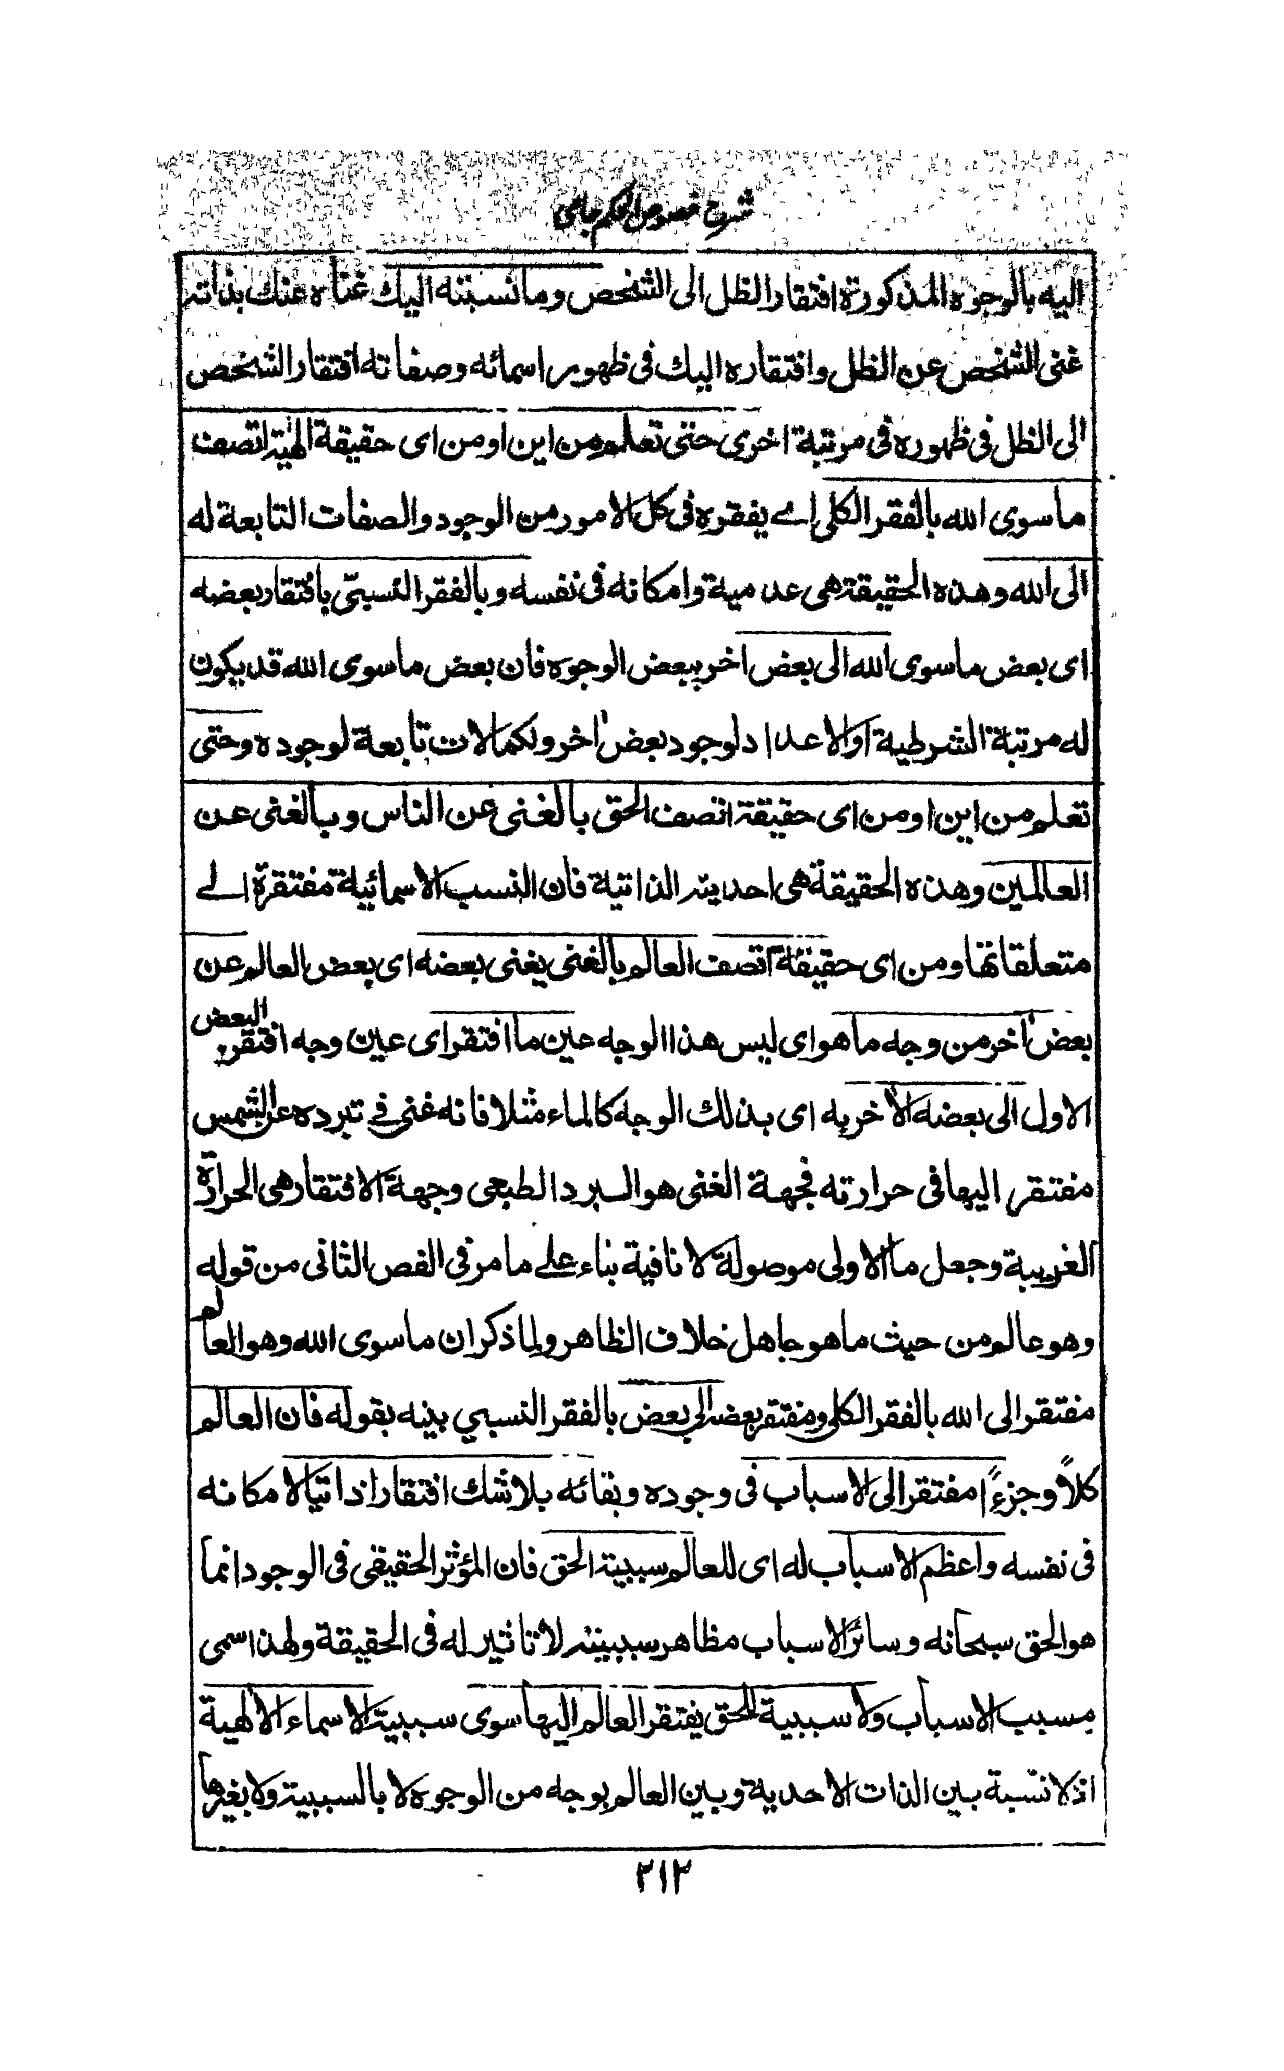 شرح فصوص الحكم جامي
اليه بالوجوه المذكورة افتقار الظل الى الشخص وما نسبته اليك غناه عنك بذاته
غنى الشخص عن الظل وافتقاره اليك فى ظهور اسمائه وصفاته افتقار الشخص
الى الظل فى ظهوره فى مرتبة اخرى حتى تعلم من اين او من اى حقيقة الهية اتصف
ما سوى الله بالفقر الكلى اے بفقره فى كل الامور من الوجود والصفات التابعة له
الى الله وهذه الحقيقة هى عدمية وامكانه فى نفسه وبالفقر النسبىّ بافتقار بعضه
اى بعض ما سوى الله الى بعض اخر ببعض الوجوه فان بعض ما سوى الله قد يكون
له مرتبة الشرطية او الاعداد لوجود بعض اخر ولكمالات تابعة لوجوده وحتى
تعلم من اين او من اى حقيقة اتصف الحق بالغنى عن الناس وبالغنى عن
العالمين وهذه الحقيقة هى احديته الذاتية فان النسب الاسمائية مفتقرة الے
متعلقاتها ومن اى حقيقة اتصف العالم بالغنى بغنى بعضه اى بعض العالم عن
بعض اخر من وجه ما هو اى ليس هذا الوجه عين ما افتقر اى عين وجه افتقر البعض
الاول الى بعضه الاخر به اى بذلك الوجه كالماء مثلا فانه غنى فے تبرده عن الشمس
مفتقر اليها فى حرارته فجهة الغنى هو البرد الطبعى وجهة الافتقار هى الحرارة
الغريبة وجعل ما الاولى موصولة لا نافية بناء علے ما مر فى الفص الثانى من قوله
وهو عالم من حيث ما هو جاهل خلاف الظاهر ولما ذكر ان ما سوى الله وهو العالم
مفتقر الى الله بالفقر الكلى ومفتقر بعضه الى بعض بالفقر النسبي بينه بقوله فان العالم
كلاً وجزءًا مفتقر الى الاسباب فى وجوده وبقائه بلا شك افتقارا ذاتيا لامكانه
فى نفسه واعظم الاسباب له اى للعالم سببية الحق فان المؤثر الحقيقى فى الوجود انما
هو الحق سبحانه وسائر الاسباب مظاهر سببيته لا تاثير له فى الحقيقة ولهذا سمى
مسبب الاسباب ولا سببية للحق يفتقر العالم اليها سوى سببية الاسماء الالهية
اذ لا نسبة بين الذات الاحدية وبين العالم بوجه من الوجوه لا بالسببية ولا بغيرها
٢١٢